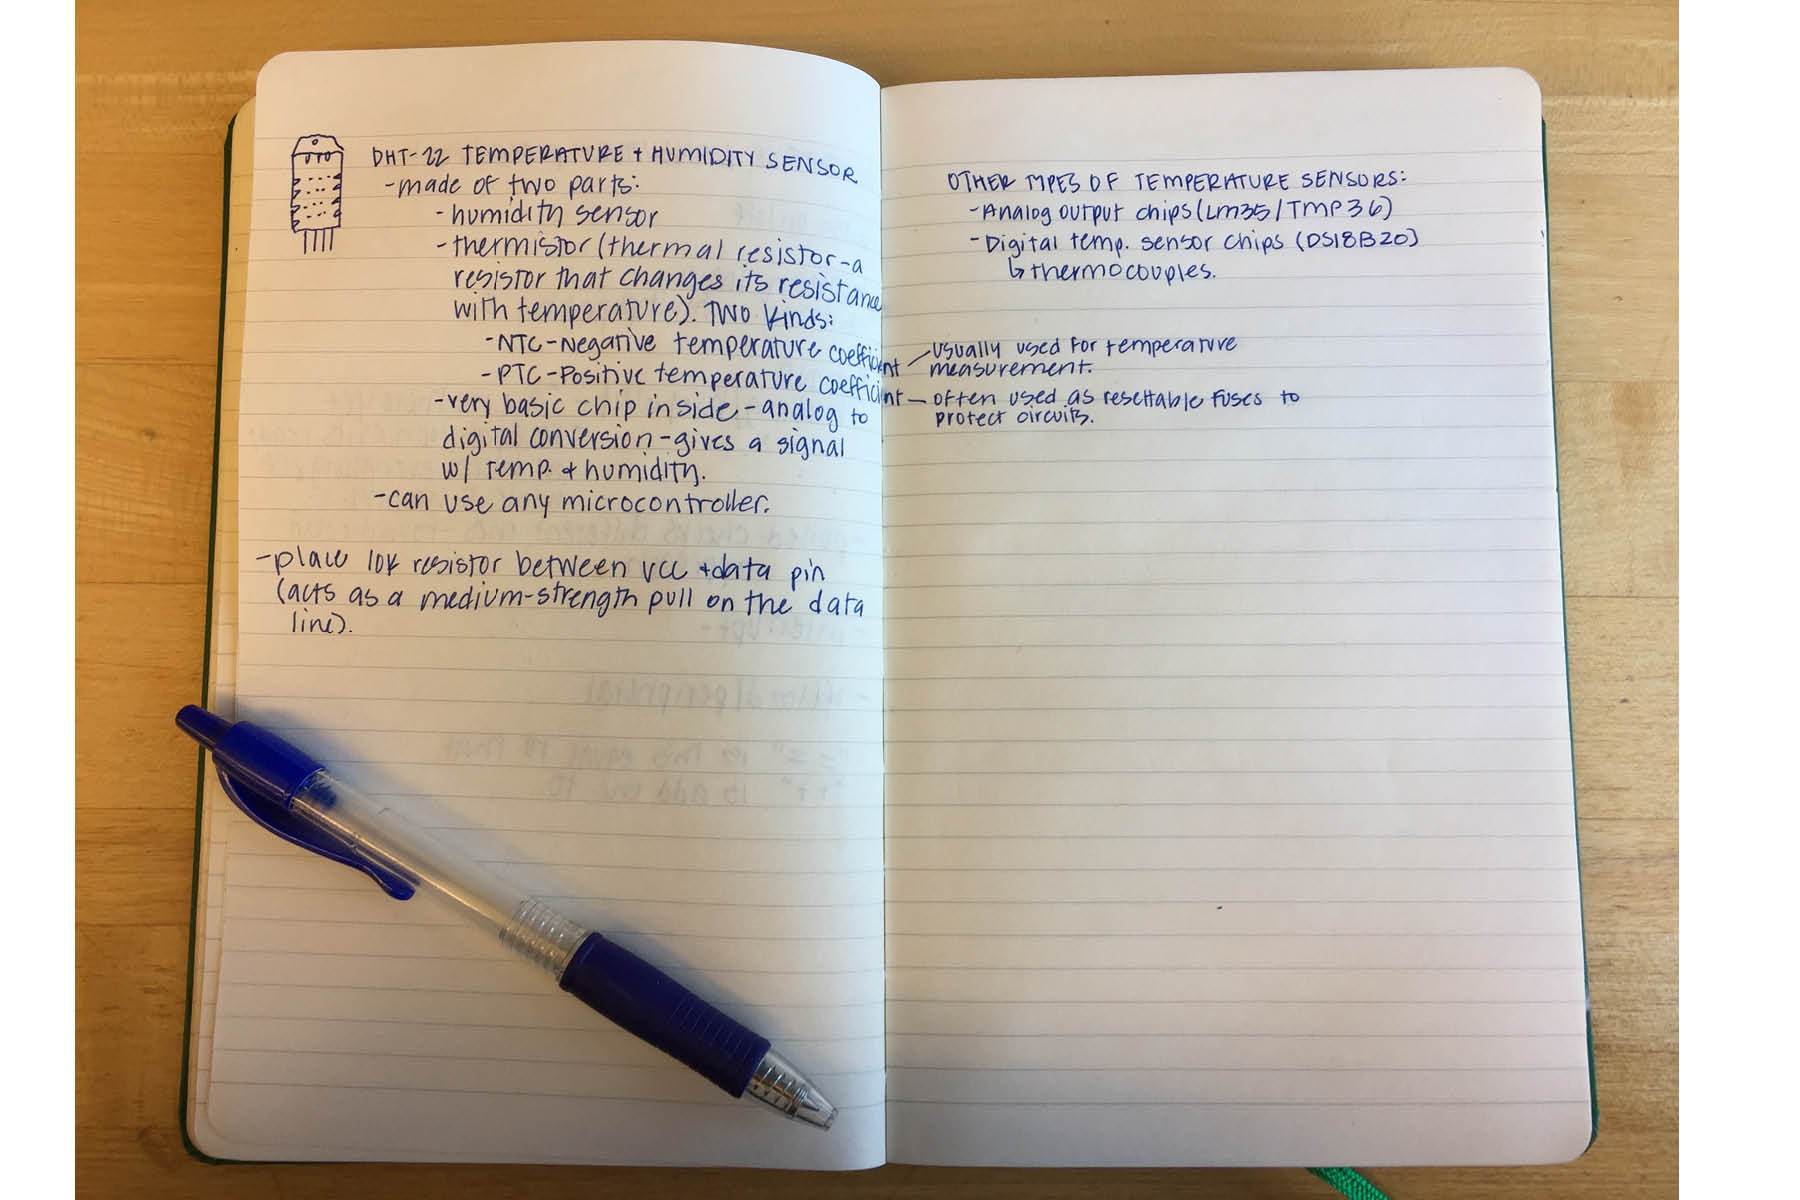 DHT-22 TEMPERATURE + HUMIDITY SENSOR
-made of two parts:
-humidity sensor
-thermistor (thermal resistor-a
resistor that changes its resistance
with temperature). TWO kinds:
-NTC-Negative temperature coefficient
-PTC-Positive temperature coefficient
-very basic chip inside - analog to
digital conversion-gives a signal
w/ temp. + humidity.
-can use any microcontroller.
-place 10k resistor between VCC + data pin
(acts as a medium-strength pull on the data
line).
OTHER TYPES OF TEMPERATURE SENSORS:
-Analog output chips (LM35/TMP36)
-Digital temp. sensor chips (DS18B20)
↳ thermocouples.
usually used for temperature
measurement.
often used as resettable fuses to
protect circuits.